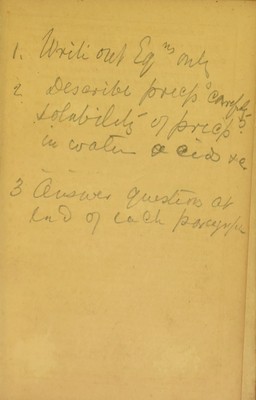 1. Write out Eqns only
2. Describe precps
solubility of precps
in water acid &c
3 Answer question at
end of each paragraph